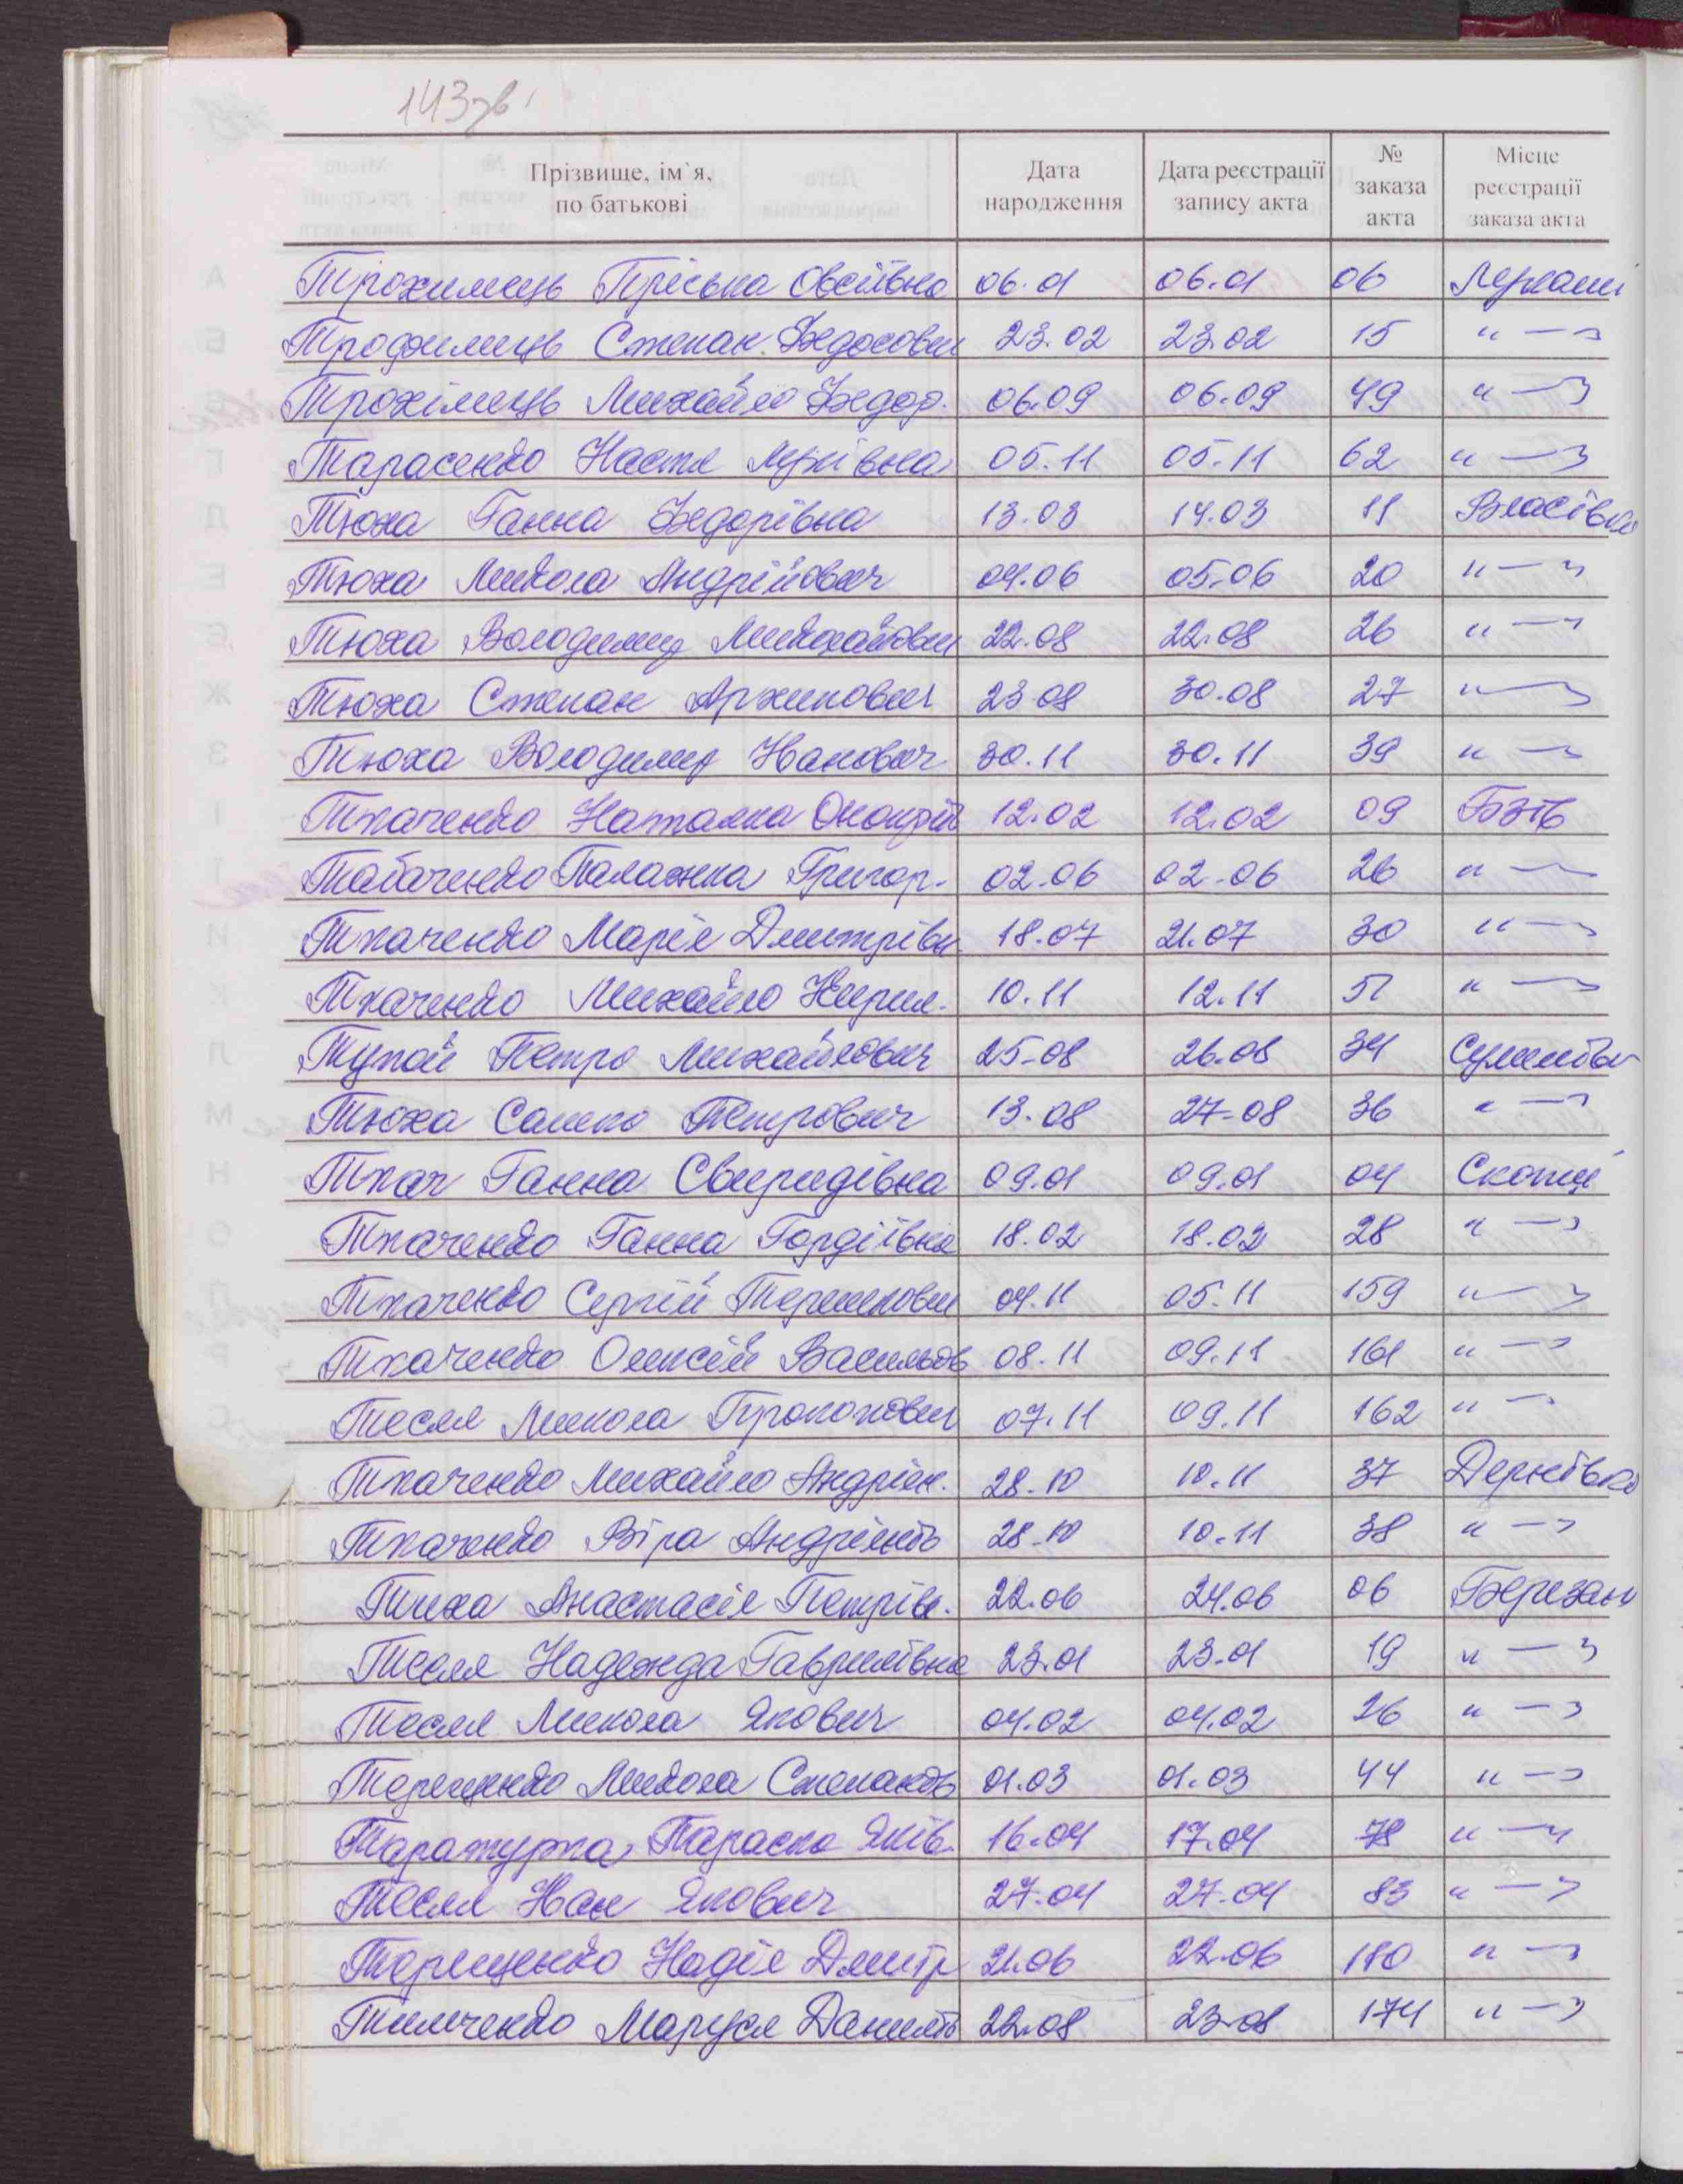 143зв
Прізвище, ім`я, по батькові Дата народження Дата реєстрації запису акта № заказа акта Місце реєстрації заказа акта
Трохимець Пріська Овсіївна 06.01 06.01 06 Лехнані
Трофимець Степан Федосович 23.02 23.02 15 " —
Трохімець Михайло Федор. 06.09 06.09 49 " —
Тарасенко Настя Юріївна 05.11 05.11 62 " —
Тюха Ганна Федорівна 13.03 14.03 11 Власівка
Тюха Микола Андрійович 04.06 05.06 20 " —
Тюха Володимир Михайлович 22.08 22.08 26 " —
Тюха Степан Архипович 23.08 30.08 27 " —
Тюха Володимир Іванович 30.11 30.11 39 " —
Ткаченко Наталка Онопрії 12.02 12.02 09 Бзів
Табаченко Палажка Григор. 02.06 02.06 26 " —
Ткаченко Марія Дмитрівн 18.07 21.07 30 " —
Ткаченко Михайло Кирил. 10.11 12.11 51 " —
Тупой Петро Михайлович 25.08 26.08 34 Сулимівка
Тюха Сашко Петрович 13.08 27.08 36 " —
Ткач Ганна Свиридівна 09.01 09.01 04 Скопці
Ткаченко Ганна Гордіївна 18.02 18.02 28 " —
Ткаченко Сергій Терешкович 04.11 05.11 159 " —
Ткаченко Олексій Васильов 08.11 09.11 161 " —
Тесля Микола Прокопович 07.11 09.11 162 " —
Ткаченко Михайло Андріян. 28.10 10.11 37 Дернівка
Ткаченко Віра Андріянів 28.10 10.11 38 " —
Тиха Анастасія Петрівн. 22.06 24.06 06 Березань
Тесля Надежда Гаврилівна 23.01 23.01 19 " —
Тесля Микола Якович 04.02 04.02 26 " —
Терещенко Микола Степанов 01.03 01.03 44 " —
Таратурка Параска Яків. 16.04 17.04 78 " —
Тесля Іван Якович 27.04 27.04 83 " —
Терещенко Надія Дмитр 21.06 22.06 110 " —
Тимченко Маруся Данилів 22.08 23.08 174 " —